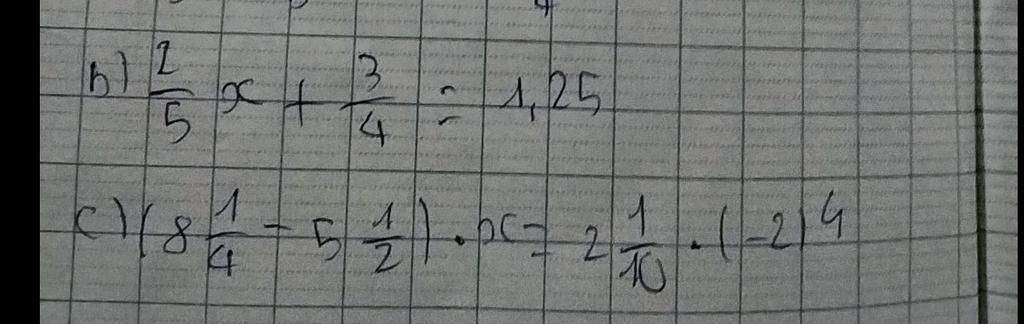 b) 2/5 x + 3/4 = 1,25
c) (8 1/4 - 5 1/2) . x = 2 1/10 . (-2)^4